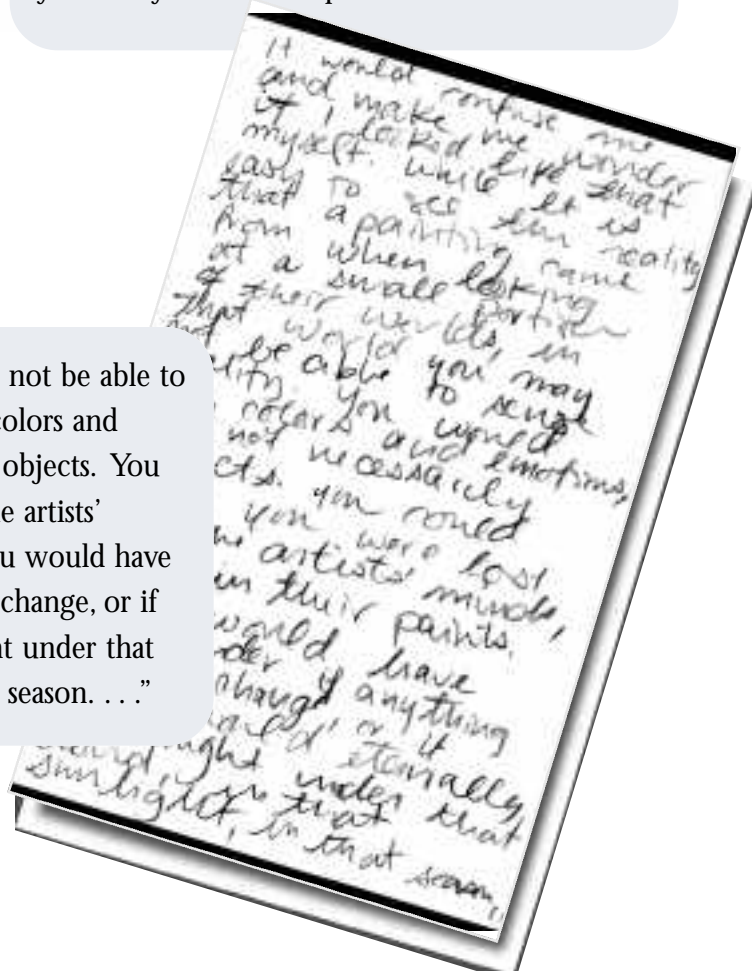 It would confuse me
and make me wonder
if I looked like that
myself. While it is
easy to see the reality
that
from a painting came
at a when looking
at a small portion
of their worlds, in
that world you may
not be able to sense
You would
colors and emotions,
not necessarily
you could
you were lost
artists' minds,
in their paints.
would have
if anything
change, or if
eternally
under that
in that
sunlight, in that season,
not be able to
colors and
objects. You
e artists'
u would have
change, or if
t under that
season. . . .”